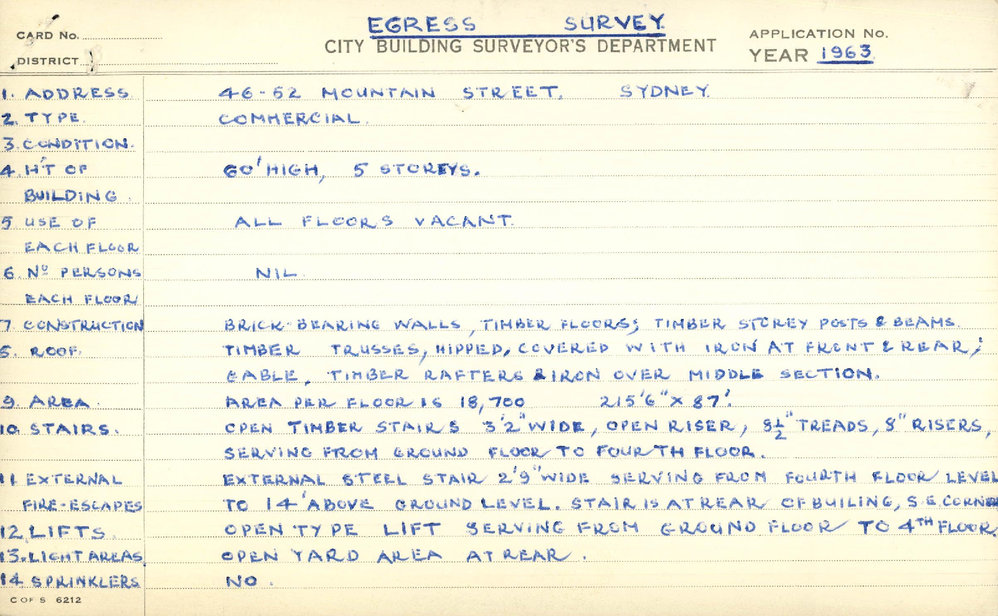 EGRESS SURVEY
CARD No.
CITY BUILDING SURVEYOR'S DEPARTMENT
APPLICATION No.
DISTRICT
YEAR 1963
1. ADDRESS 46-52 MOUNTAIN STREET, SYDNEY.
2. TYPE. COMMERCIAL.
3. CONDITION.
4. H'T OF 60' HIGH, 5 STOREYS.
BUILDING.
5 USE OF ALL FLOORS VACANT.
EACH FLOOR
6. No PERSONS NIL
EACH FLOOR
7. CONSTRUCTION BRICK-BEARING WALLS, TIMBER FLOORS; TIMBER STOREY POSTS & BEAMS.
8. ROOF. TIMBER TRUSSES, HIPPED, COVERED WITH IRON AT FRONT & REAR;
GABLE, TIMBER RAFTERS & IRON OVER MIDDLE SECTION.
9. AREA. AREA PER FLOOR IS 18,700 215'6" X 87'.
10. STAIRS. OPEN TIMBER STAIRS 3'2" WIDE, OPEN RISER, 8½" TREADS, 8" RISERS,
SERVING FROM GROUND FLOOR TO FOURTH FLOOR.
11. EXTERNAL EXTERNAL STEEL STAIR 2'9" WIDE SERVING FROM FOURTH FLOOR LEVEL
FIRE-ESCAPES TO 14' ABOVE GROUND LEVEL. STAIR IS AT REAR OF BUILING, S.E. CORNER
12. LIFTS. OPEN TYPE LIFT SERVING FROM GROUND FLOOR TO 4TH FLOOR.
13. LIGHT AREAS. OPEN YARD AREA AT REAR.
14. SPRINKLERS NO.
C OF S 6212